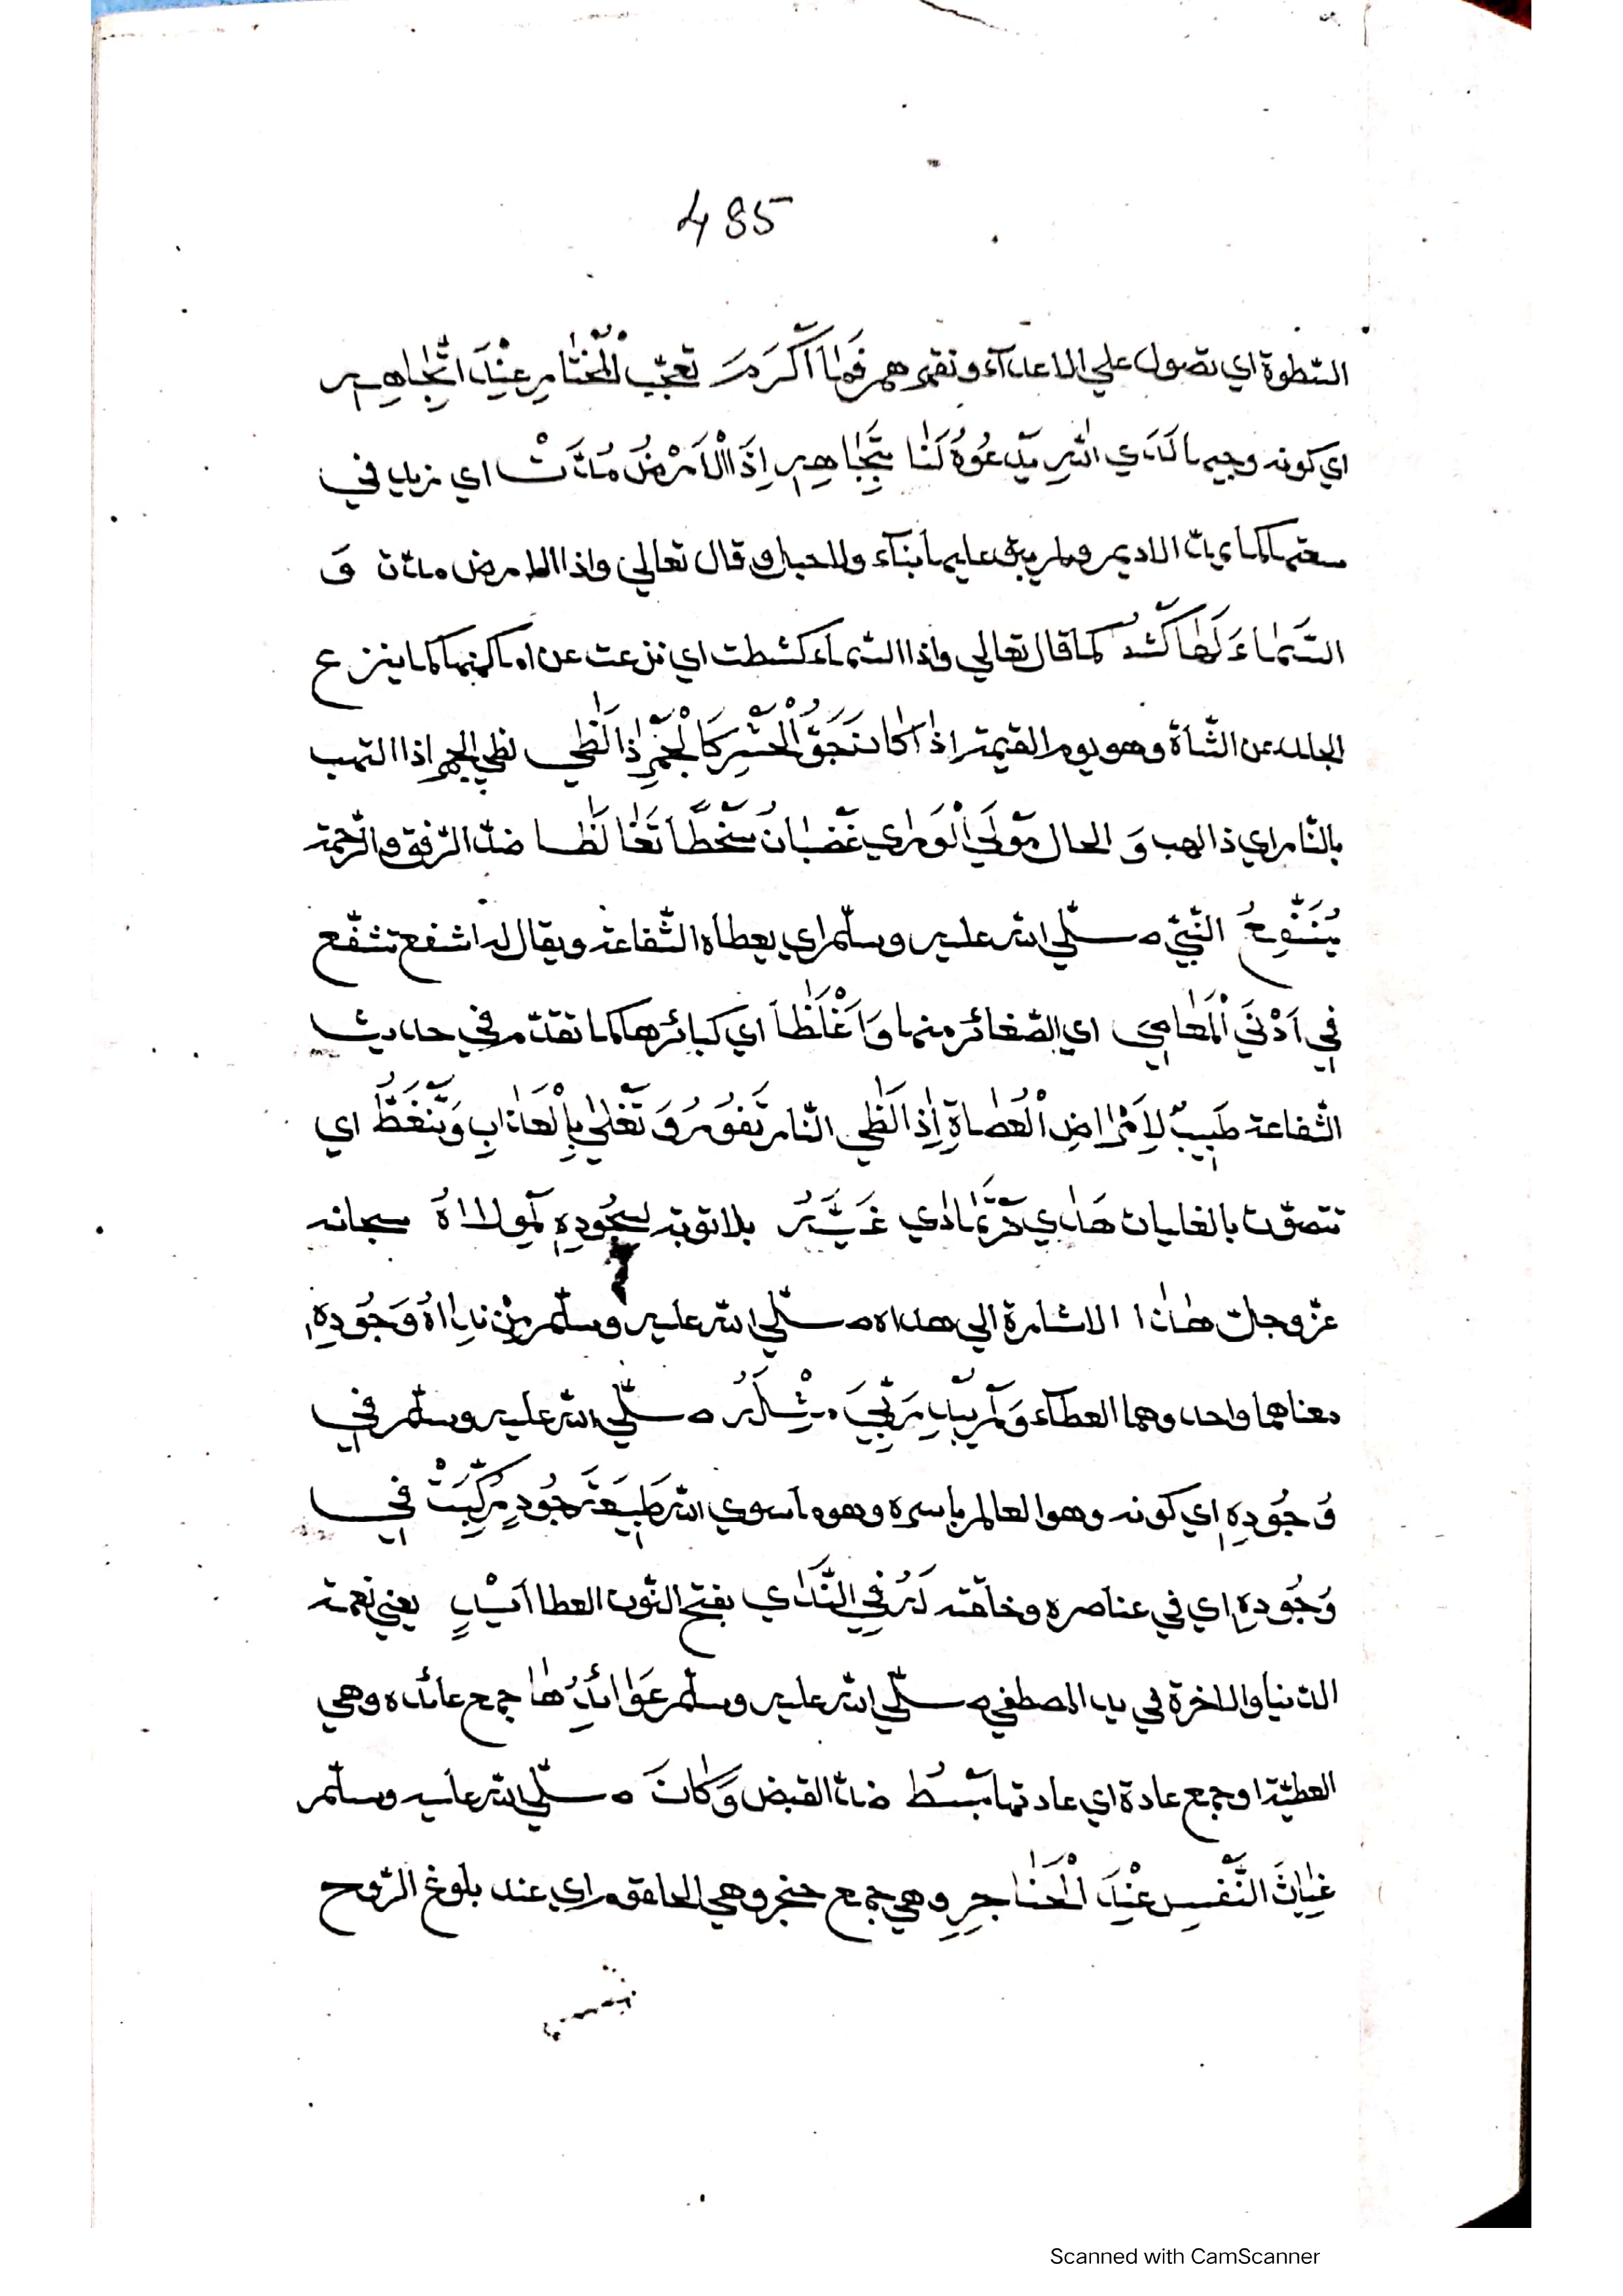 485
السّطوة اي تصول علي الاعدآء و تقهرهم فَمَا اَكْرَمَ تعجّب الْمُخْتَارِ عِنْدَ اتِّجَاهِهِ
اي كونه وجيها لَدَي اللّهِ يَدْعُوهُ لَنَا بِتِجَاهِهِ اِذَا الْاَرْضُ مُدَّتْ اي زيد في
سعتها كما يمدّ الاديم ولم يبق عليها بنآء ولا جبل وقال تعالي واذا الارض مدّت وَ
السَّمَاءَ لَهَا كَشْدُ كما قال تعالي واذا السّماء كشطت اي نزعت عن اماكنها كما ينزع
الجلد عن الشّاة وهو يوم القيٰمة اذا كان نَجَقُ الْحَشْرِ كَالْجَمْرِ ذَا لَظٰي لظي الجمر اذا التهب
بالنّار اي ذا لهب وَ الحال مَوْلَي الْوَرٰي غَضْبَانُ سَخَطًا تَغَالَظَا ضدّ الرّفق والرّحمة
يُشَفَّعُ النّبيّ صلّي اللّه عليه وسلّم اي يعطاه الشّفاعة ويقال له اشفع تشفّع
فِي اَدْنَي الْمَعَاصِي اي الصّغائر منها وَاَغْلَظَا اي كبائرها كما تقدّم في حديث
الشّفاعة طَبِيبٌ لِاَمْرَاضِ الْعُصَاةِ اِذَا لَظٰي النّار تَفُورُ وَ تَغْلٰي بِالْعَذَابِ وَتَنْغَظُّ اي
تتصوّت بالغليان هَدٰي غَيَّهُ بلا توبة لِسُجُودِهِ لِمَوْلَاهُ سبحانه
عزّ وجلّ هٰذَا الاشارة الي هداه صلّي اللّه عليه وسلّم مِنْ نَدَاهُ وَجُودِهِ
معناهما واحد وهما العطآء وَلَمْ يُبْدِ رَبِّيَ مِثْلَهُ صلّي اللّه عليه وسلّم في
وُجُودِهِ اي كونه وهو العالم باسره وهو ما سوي اللّه طَبِيعَةُ جُودٍ رُكِّبَتْ في
وُجُودِهِ اي في عناصره وخلقته لَهُ فِي النَّدٰي بفتح النّون العطا اَيْدٍ يعني نعمة
الدّنيا والاخرة في يد المصطفي صلّي اللّه عليه وسلّم عَوَائِدُهَا جمع عائده وهي
العطيّة او جمع عادة اي عادتها بَسْطُ ضدّ القبض وَكَانَ صلّي اللّه عليه وسلّم
غِيَاثَ النَّفْسِ عِنْدَ الْحَنَاجِرِ وهي جمع حنجر وهي الحلقوم اي عند بلوغ الرّوح
Scanned with CamScanner